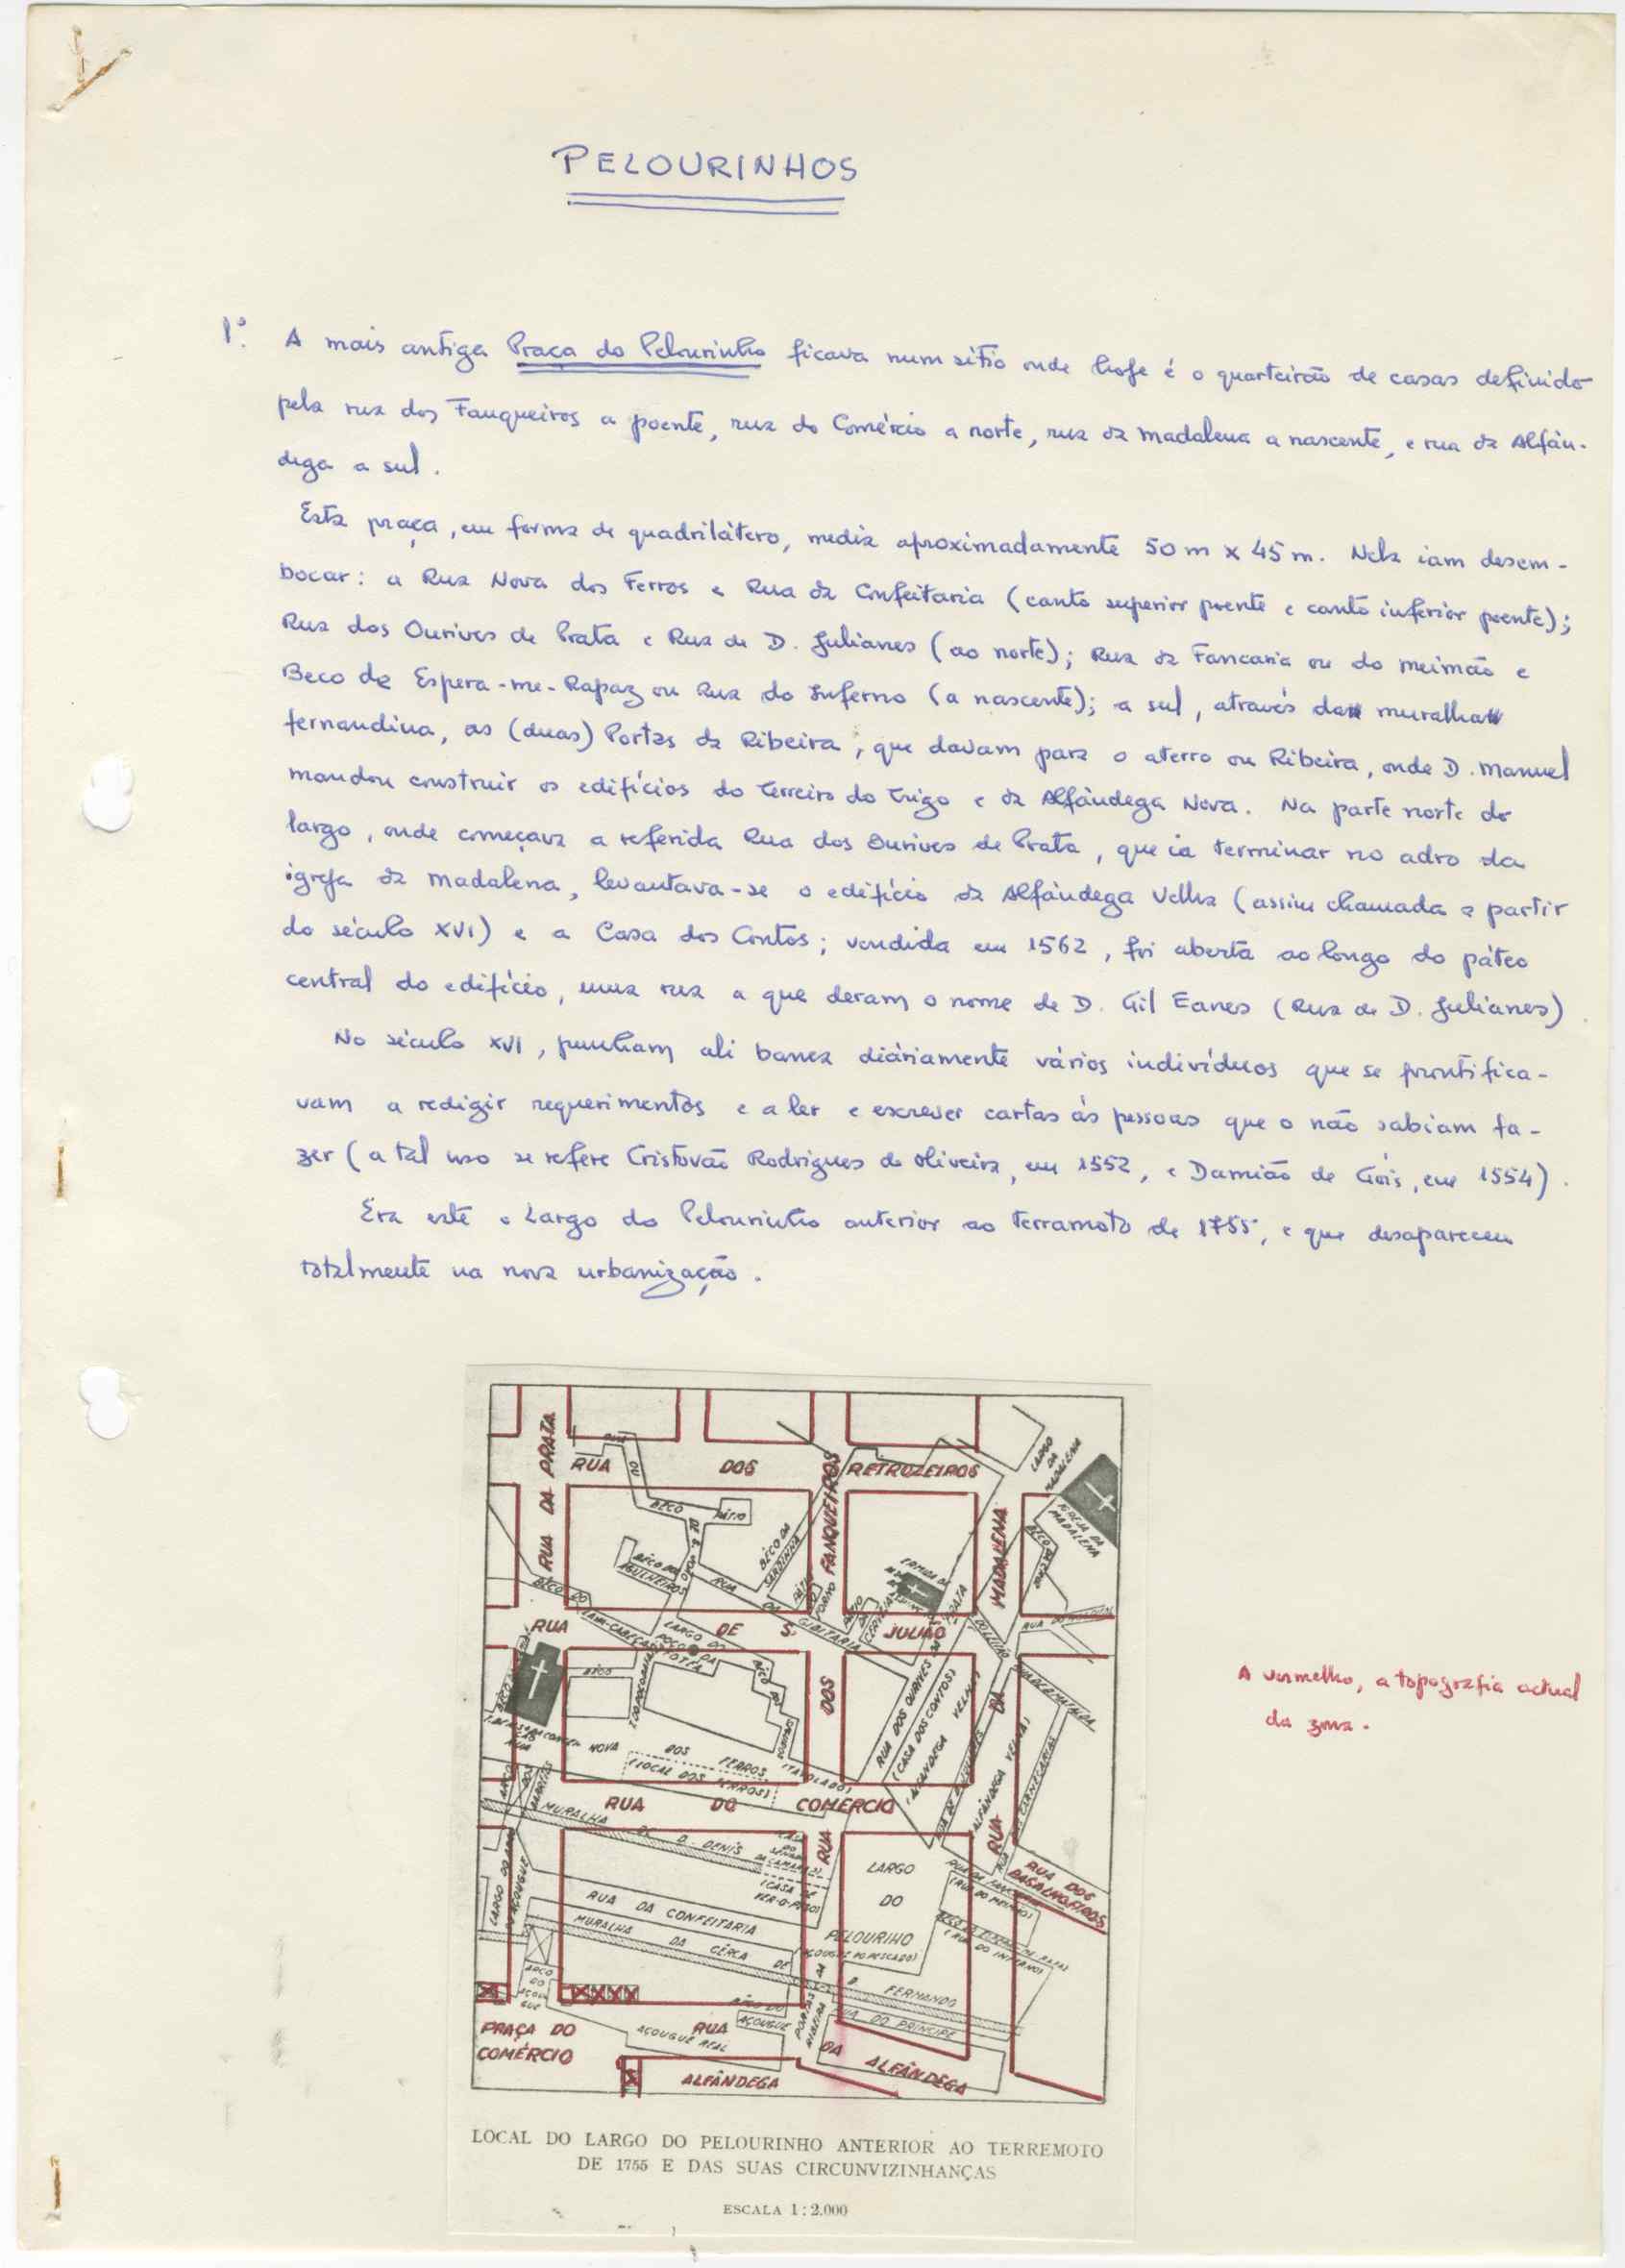 PELOURINHOS
1º. A mais antiga Praça do Pelourinho ficava num sítio onde hoje é o quarteirão de casas definido
pela rua dos Fanqueiros a poente, rua do Comércio a norte, rua da Madalena a nascente, e rua da Alfân-
dega a sul.
Esta praça, em forma de quadrilátero, media aproximadamente 50 m x 45 m. Nela iam desem-
bocar: a Rua Nova dos Ferros e Rua da Confeitaria (canto superior poente e canto inferior poente);
Rua dos Ourives de Prata e Rua de D. Julianes (ao norte); Rua da Fancaria ou do Meimão e
Beco de Espera-me-Rapaz ou Rua do Inferno (a nascente); a sul, através da muralha
fernandina, as (duas) Portas da Ribeira, que davam para o aterro ou Ribeira, onde D. Manuel
mandou construir os edifícios do Terreiro do Trigo e da Alfândega Nova. Na parte norte do
largo, onde começava a referida Rua dos Ourives de Prata, que ia terminar no adro da
igreja da Madalena, levantava-se o edifício da Alfândega Velha (assim chamada a partir
do século XVI) e a Casa dos Contos; vendida em 1562, foi aberta ao longo do páteo
central do edifício, uma rua a que deram o nome de D. Gil Eanes (Rua de D. Julianes).
No século XVI, punham ali banca diáriamente vários indivíduos que se prontifica-
vam a redigir requerimentos e a ler e escrever cartas às pessoas que o não sabiam fa-
zer (a tal uso se refere Cristovão Rodrigues de Oliveira, em 1552, e Damião de Góis, em 1554).
Era este o Largo do Pelourinho anterior ao terramoto de 1755, e que desapareceu
totalmente na nova urbanização.
RUA DA PRATA
RUA DOS RETROZEIROS
LARGO DA MADALENA
IGREJA DA MADALENA
BÊCO
PÁTIO
BÊCO DA SARDINHA
FANQUEIROS
MADALENA
BÊCO DOS AGULHEIROS
RUA DE S. JULIÃO
LARGO DO POÇO DA FOTEA
RUA DOS OURIVES DA PRATA
(CASA DOS CONTOS)
(ALFANDEGA VELHA)
DOS
DA
NOVA DOS FERROS
(LOCAL DOS FERROS)
(TAVOLADO)
RUA DO COMÉRCIO
MURALHA DE D. DENIS
RUA
RUA
RUA DOS BASALHOEIROS
LARGO DO PELOURIHO
(AÇOUGUE DO PESCADO)
RUA DA CONFEITARIA
MURALHA DA CÊRCA DE D. FERNANDO
(RUA DO INFERNO)
ARCO DO AÇOUGUE
RUA DO PRINCIPE
PORTAS DA RIBEIRA
AÇOUGUE REAL
PRAÇA DO COMÉRCIO
RUA DA ALFÂNDEGA
ALFÂNDEGA
A vermelho, a topografia actual
da zona.
LOCAL DO LARGO DO PELOURINHO ANTERIOR AO TERREMOTO
DE 1755 E DAS SUAS CIRCUNVIZINHANÇAS
ESCALA 1:2.000